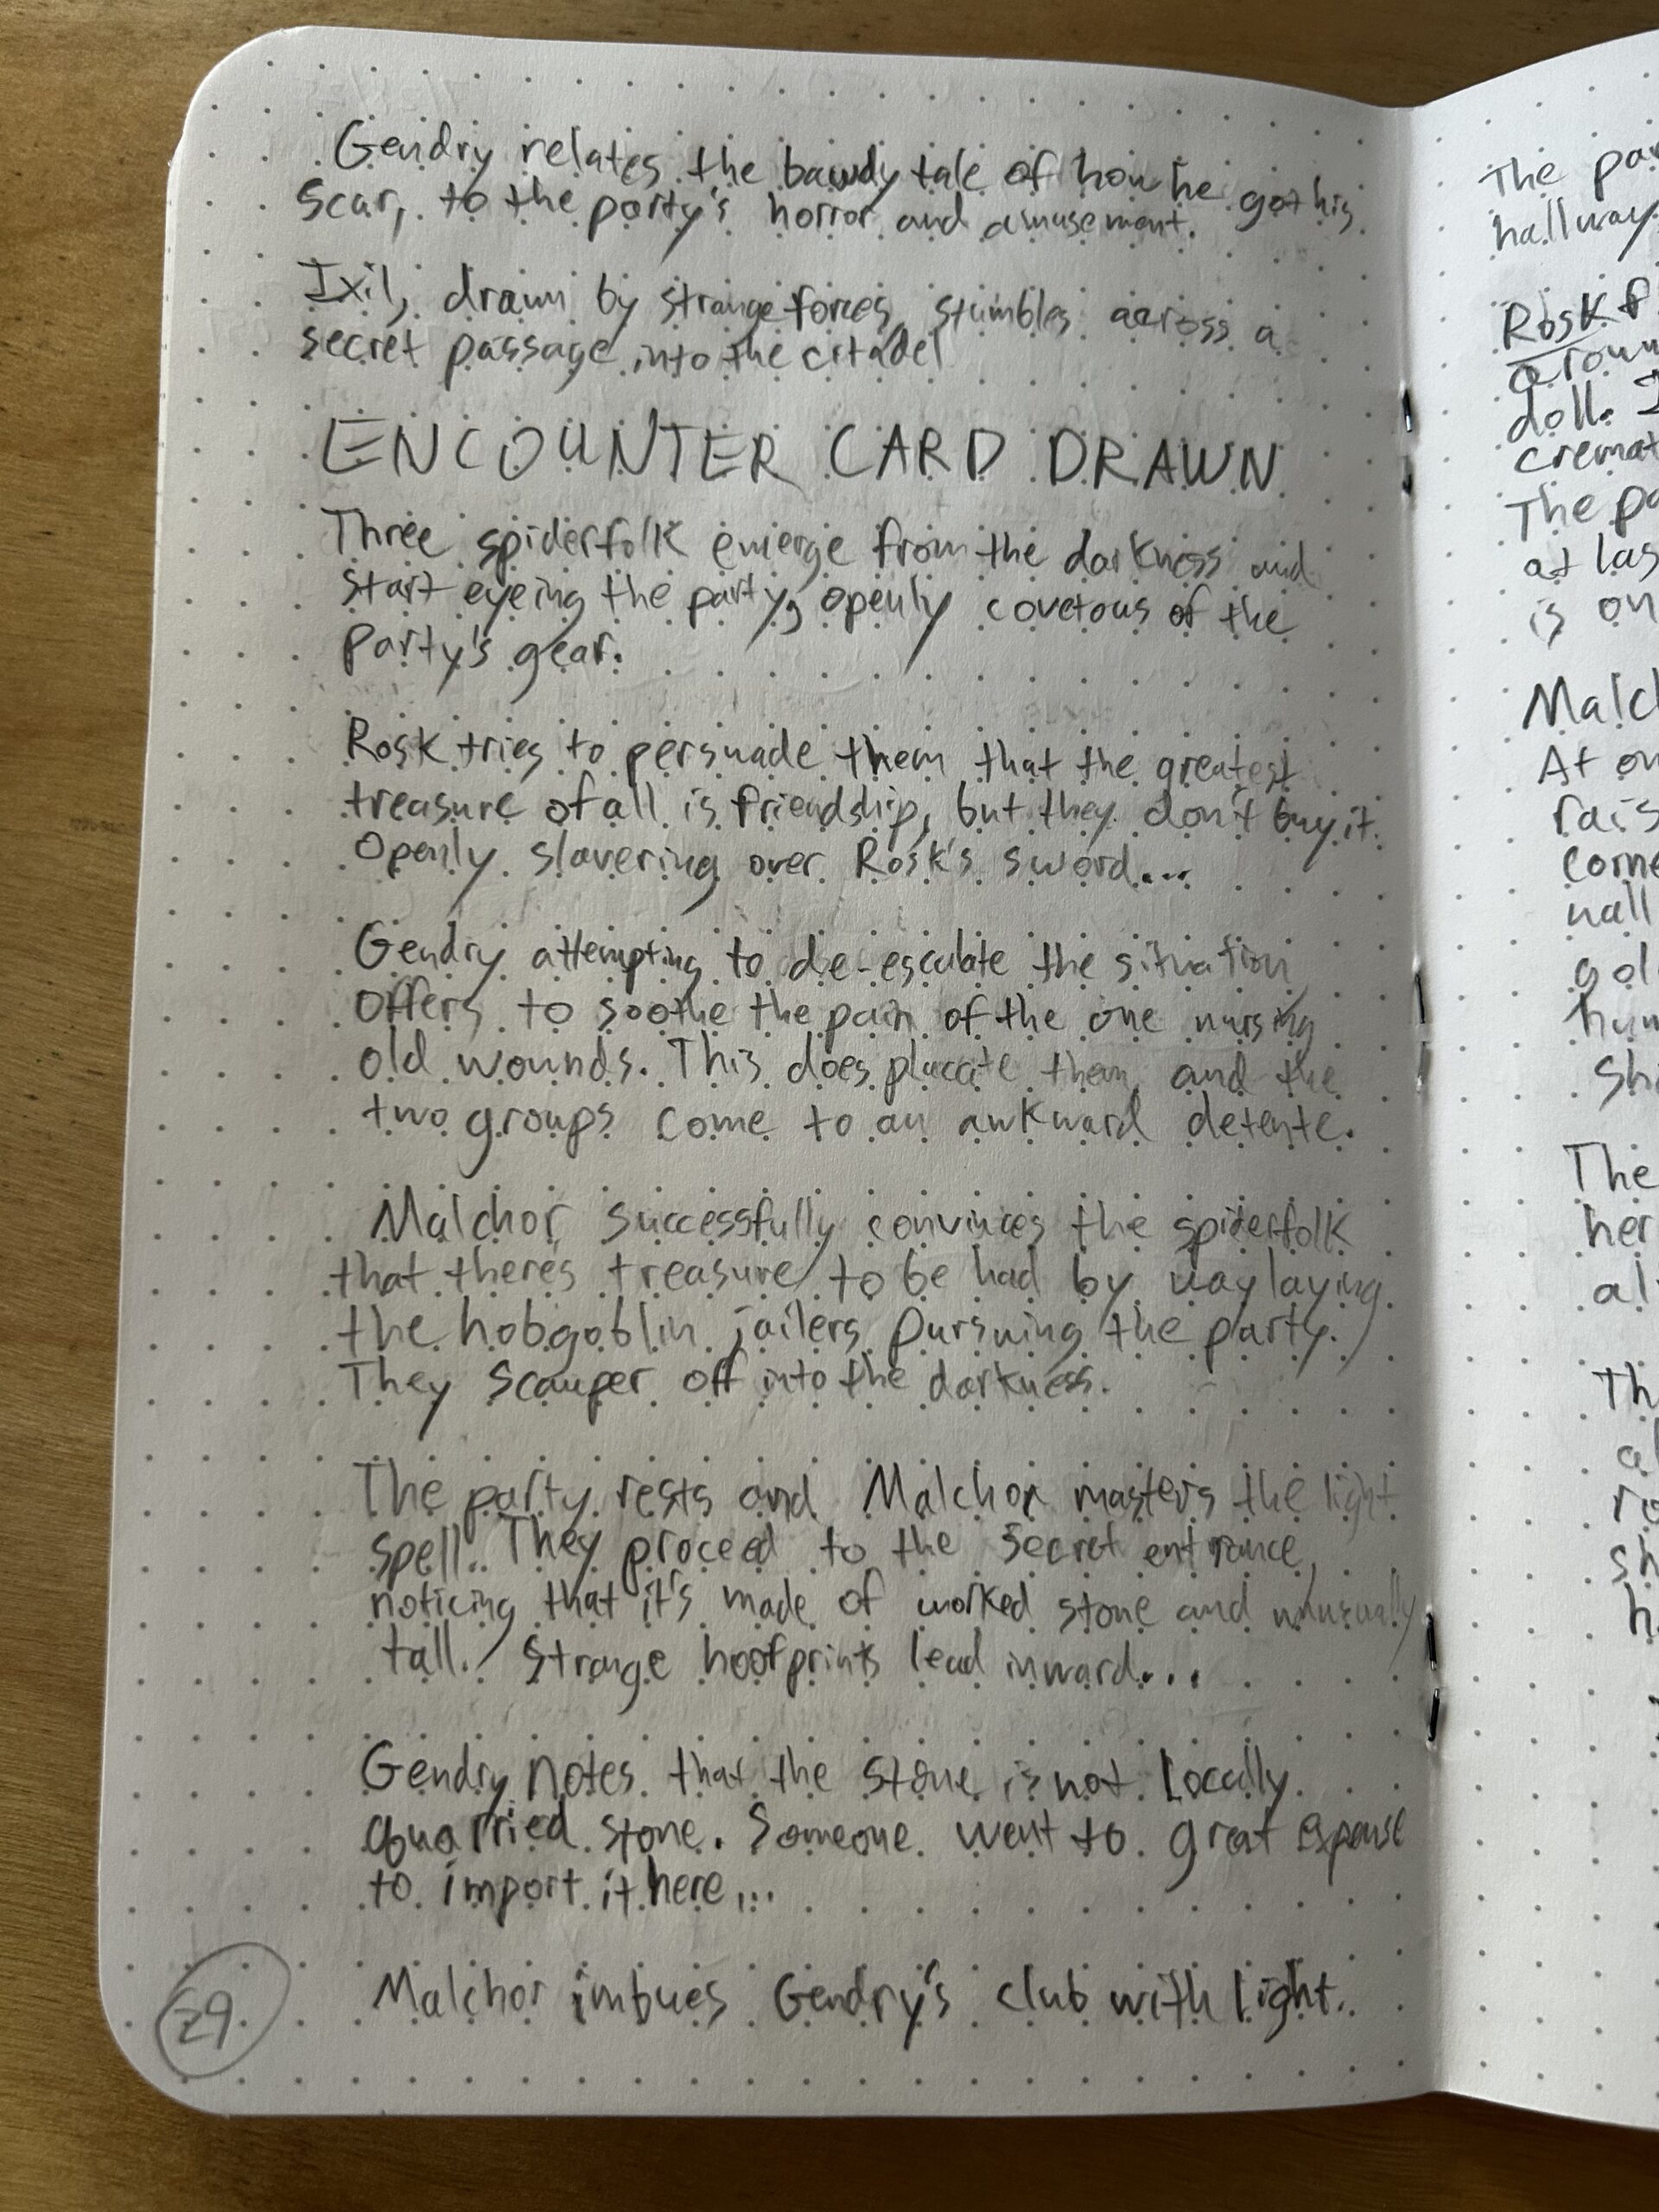 Gendry relates the bawdy tale of how he got his
scar, to the party's horror and amusement.
Ixil, drawn by strange forces, stumbles across a
secret passage into the citadel
ENCOUNTER CARD DRAWN
Three spiderfolk emerge from the darkness and
start eyeing the party, openly covetous of the
party's gear.
Rosk tries to persuade them that the greatest
treasure of all is friendship, but they don't buy it.
Openly slavering over Rosk's sword...
Gendry attempting to de-escalate the situation
offers to soothe the pain of the one nursing
old wounds. This does placate them, and the
two groups come to an awkward detente.
Malchor successfully convinces the spiderfolk
that there's treasure to be had by waylaying
the hobgoblin jailers pursuing the party.
They scamper off into the darkness.
The party rests and Malchor masters the light
spell. They proceed to the secret entrance,
noticing that it's made of worked stone and unusually
tall. Strange hoofprints lead inward...
Gendry notes that the stone is not locally
quarried stone. Someone went to great expense
to import it here...
Malchor imbues Gendry's club with light.
29
The
hallway
Rosk
doll.
The
at
is on
Malc
At
gol
The
her